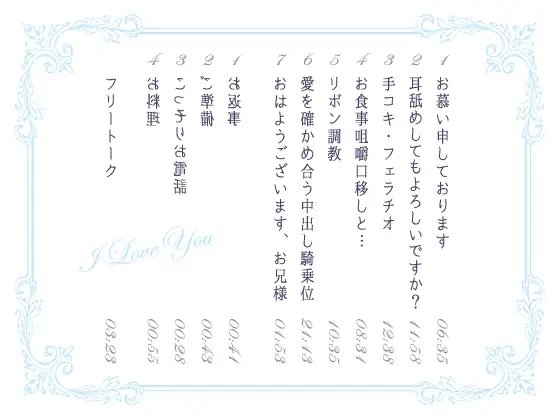 1 お慕い申しております 06:35
2 耳舐めしてもよろしいですか？ 11:58
3 手コキ・フェラチオ 12:38
4 お食事咀嚼口移しと… 08:31
5 リボン調教 10:35
6 愛を確かめ合う中出し騎乗位 21:13
7 おはようございます、お兄様 01:53
1 お返事 00:41
2 ご準備 00:43
3 こっそりお電話 00:28
4 お料理 00:55
フリートーク 03:23
I Love You